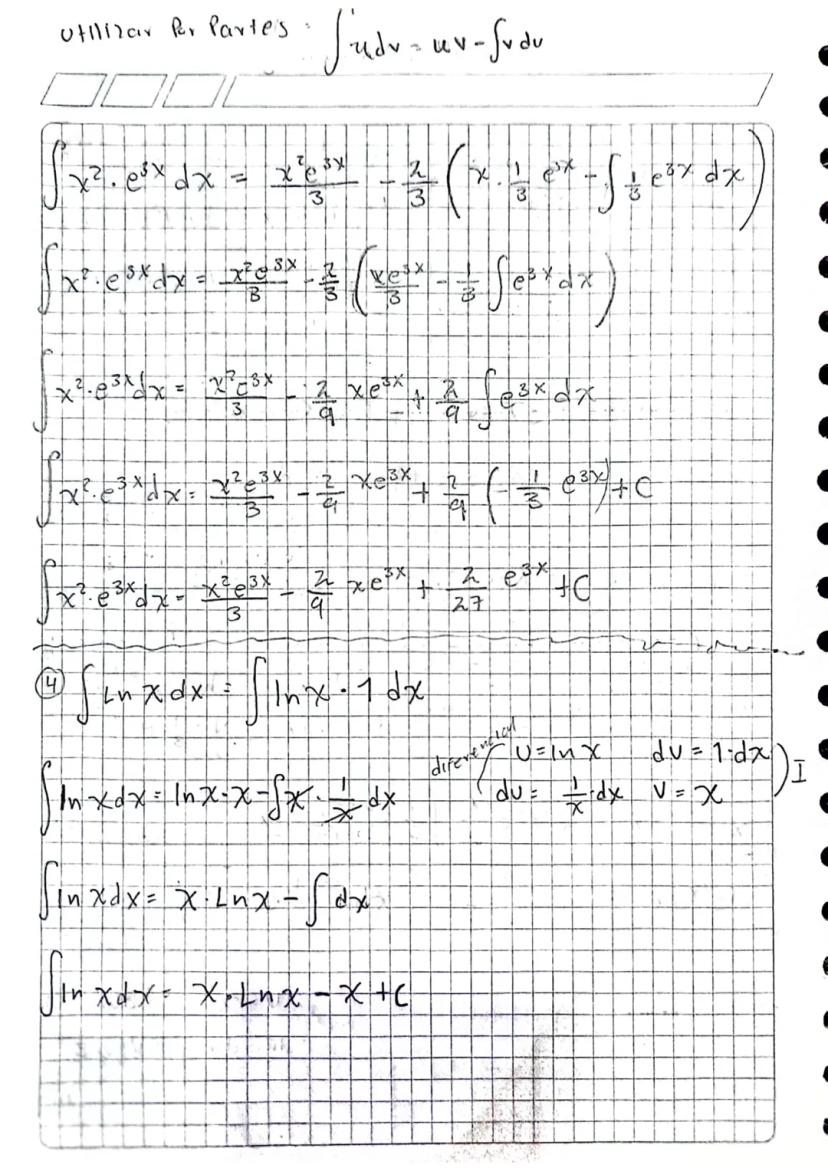 Utilizar Por Partes: ∫udv = uv - ∫vdu
∫x²·e³ˣ dx = x²e³ˣ/3 - 2/3 (x·1/3 e³ˣ - ∫1/3 e³ˣ dx)
∫x²·e³ˣdx = x²e³ˣ/3 - 2/3 (xe³ˣ/3 - 1/3 ∫e³ˣdx)
∫x²·e³ˣdx = x²e³ˣ/3 - 2/9 xe³ˣ + 2/9 ∫e³ˣ dx
∫x²·e³ˣdx = x²e³ˣ/3 - 2/9 xe³ˣ + 2/9 (- 1/3 e³ˣ) + C
∫x²·e³ˣdx = x²e³ˣ/3 - 2/9 xe³ˣ + 2/27 e³ˣ + C
④ ∫Ln x dx = ∫ln x · 1 dx
diferencial ( U = ln x dv = 1·dx ) I
du = 1/x·dx V = x
∫ln xdx = ln x·x - ∫x · 1/x dx
∫ln xdx = x·Ln x - ∫dx
∫ln xdx = x·Ln x - x + C